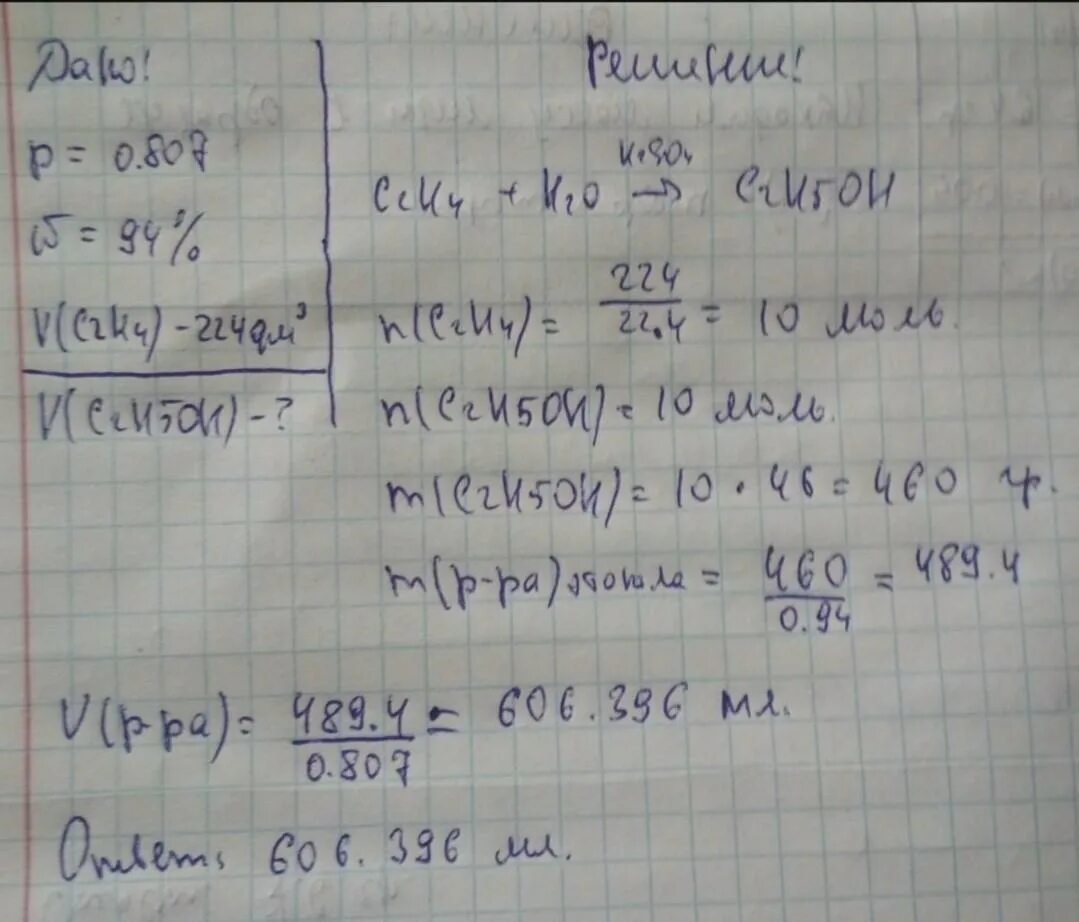 Дано!
p = 0.807
ω = 94%
V(C₂H₄) - 224дм³
V(C₂H5OH) - ?
Решение!
H₂SO₄
C₂H₄ + H₂O → C₂H5OH
n(C₂H₄) = 224/22.4 = 10 моль.
n(C₂H5OH) = 10 моль.
m(C₂H5OH) = 10 · 46 = 460 гр.
m(р-ра) этанола = 460/0.94 = 489.4
V(р-ра) = 489.4/0.807 = 606.396 мл.
Ответ: 606.396 мл.